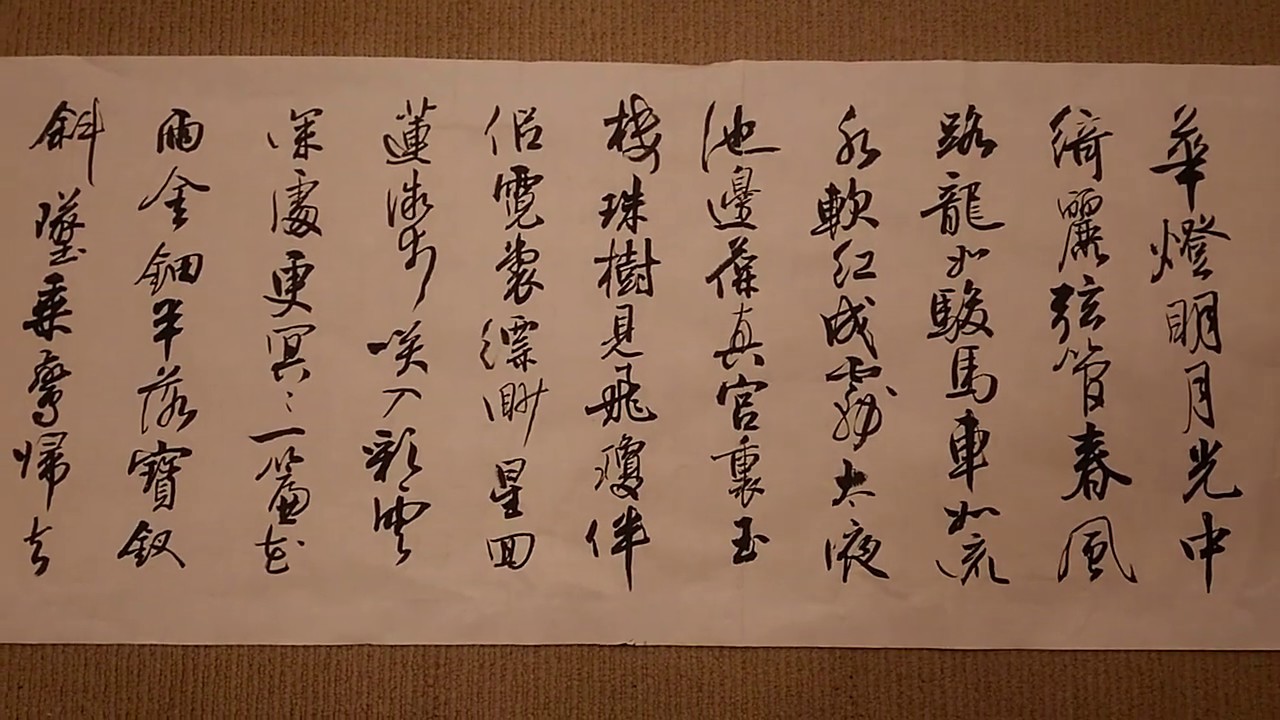 華燈明月光中
綺麗弦管春風
路龍如駿馬車如流
水軟紅成霧太液
池邊葆真宮裏玉
樓珠樹見飛瓊伴
侶霓裳縹渺星回
蓮微步咲入彩雲
深處更冥〻一簾花
雨金鈿半落寶釵
斜墜乘鸞歸去